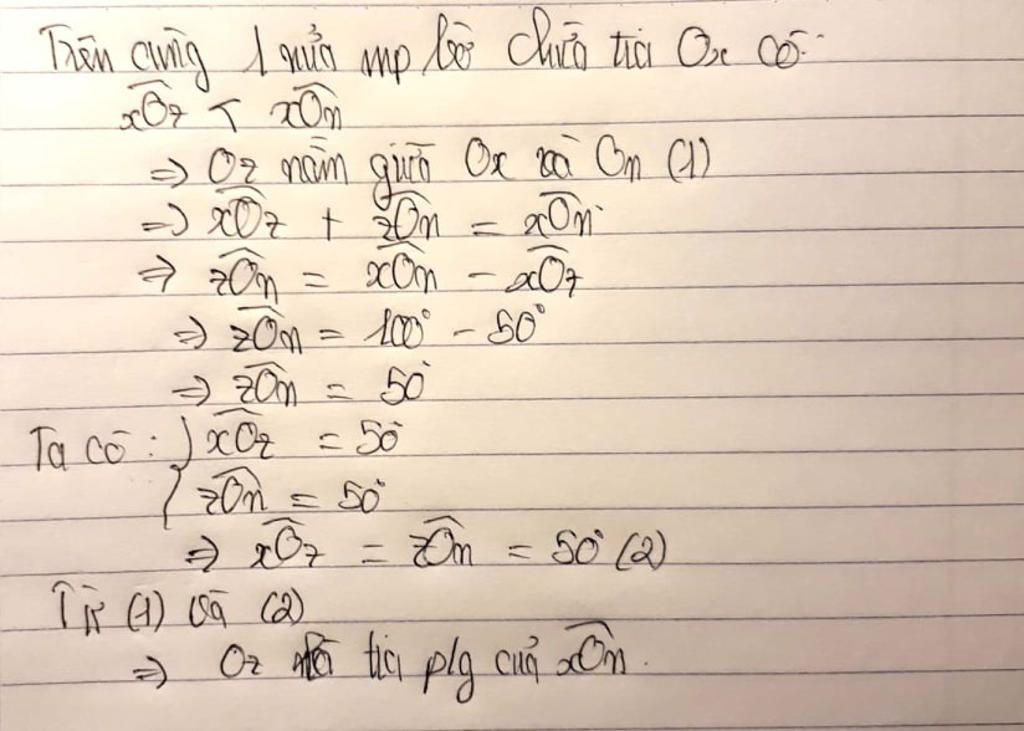 Trên cùng 1 nửa mp bờ chứa tia Ox có:
xOz < xOn
=> Oz nằm giữa Ox và On (1)
=> xOz + zOn = xOn
=> zOn = xOn - xOz
=> zOn = 100° - 50°
=> zOn = 50°
Ta có : { xOz = 50°
zOn = 50°
=> xOz = zOn = 50° (2)
Từ (1) và (2)
=> Oz là tia plg của xOn.